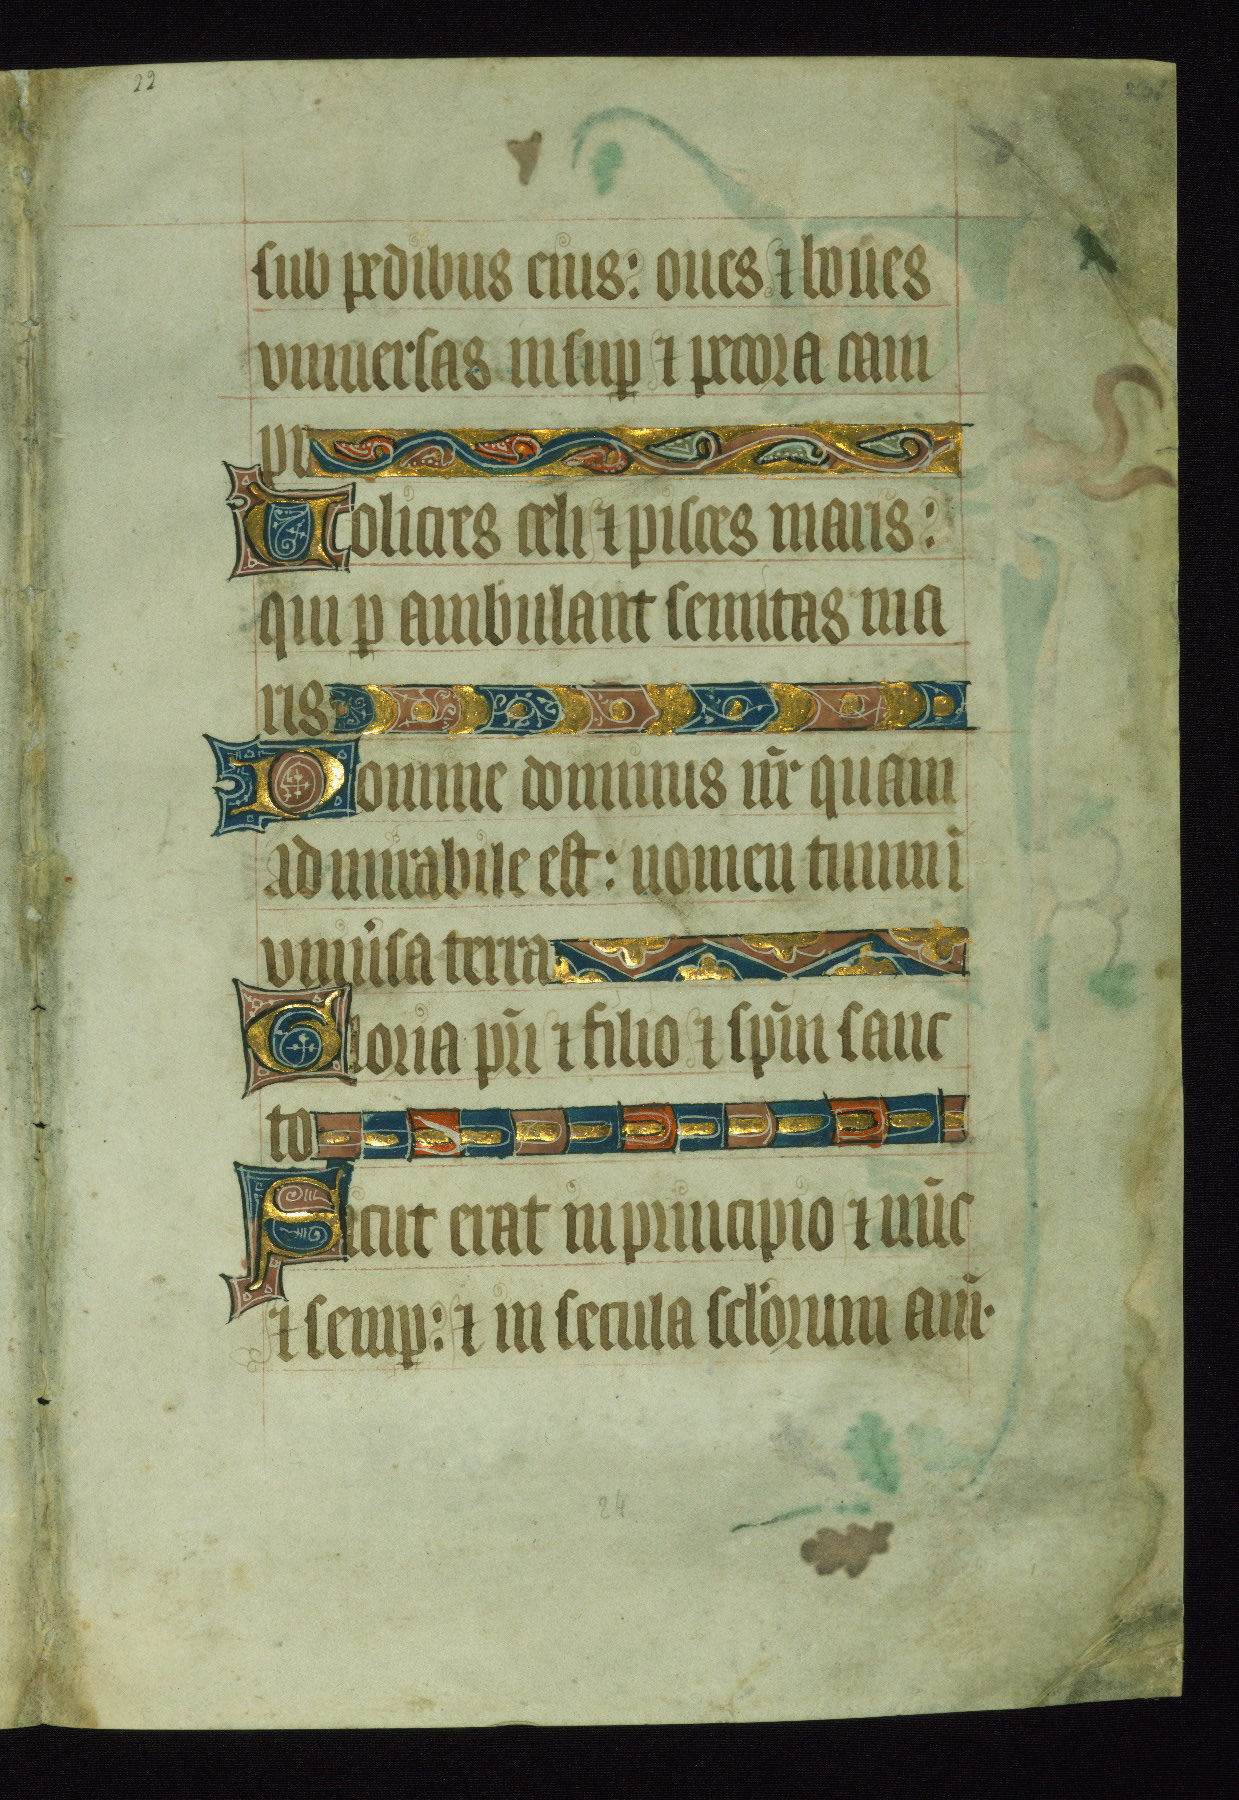 22
sub pedibus eius: oues ⁊ boues
vniuersas insup̲ ⁊ pecora cam
pi
Uolucres celi ⁊ pisces maris:
qui ꝑ ambulant semitas ma
ris
Domine dominus nr̄ quam
admirabile est: nomen tuum ī
vniũsa terra
Gloria pr̄i ⁊ filio ⁊ sp̄ui sanc
to
Sicut erat in principio ⁊ nūc
⁊ semꝑ: ⁊ in secula sclōrum am̄.
24